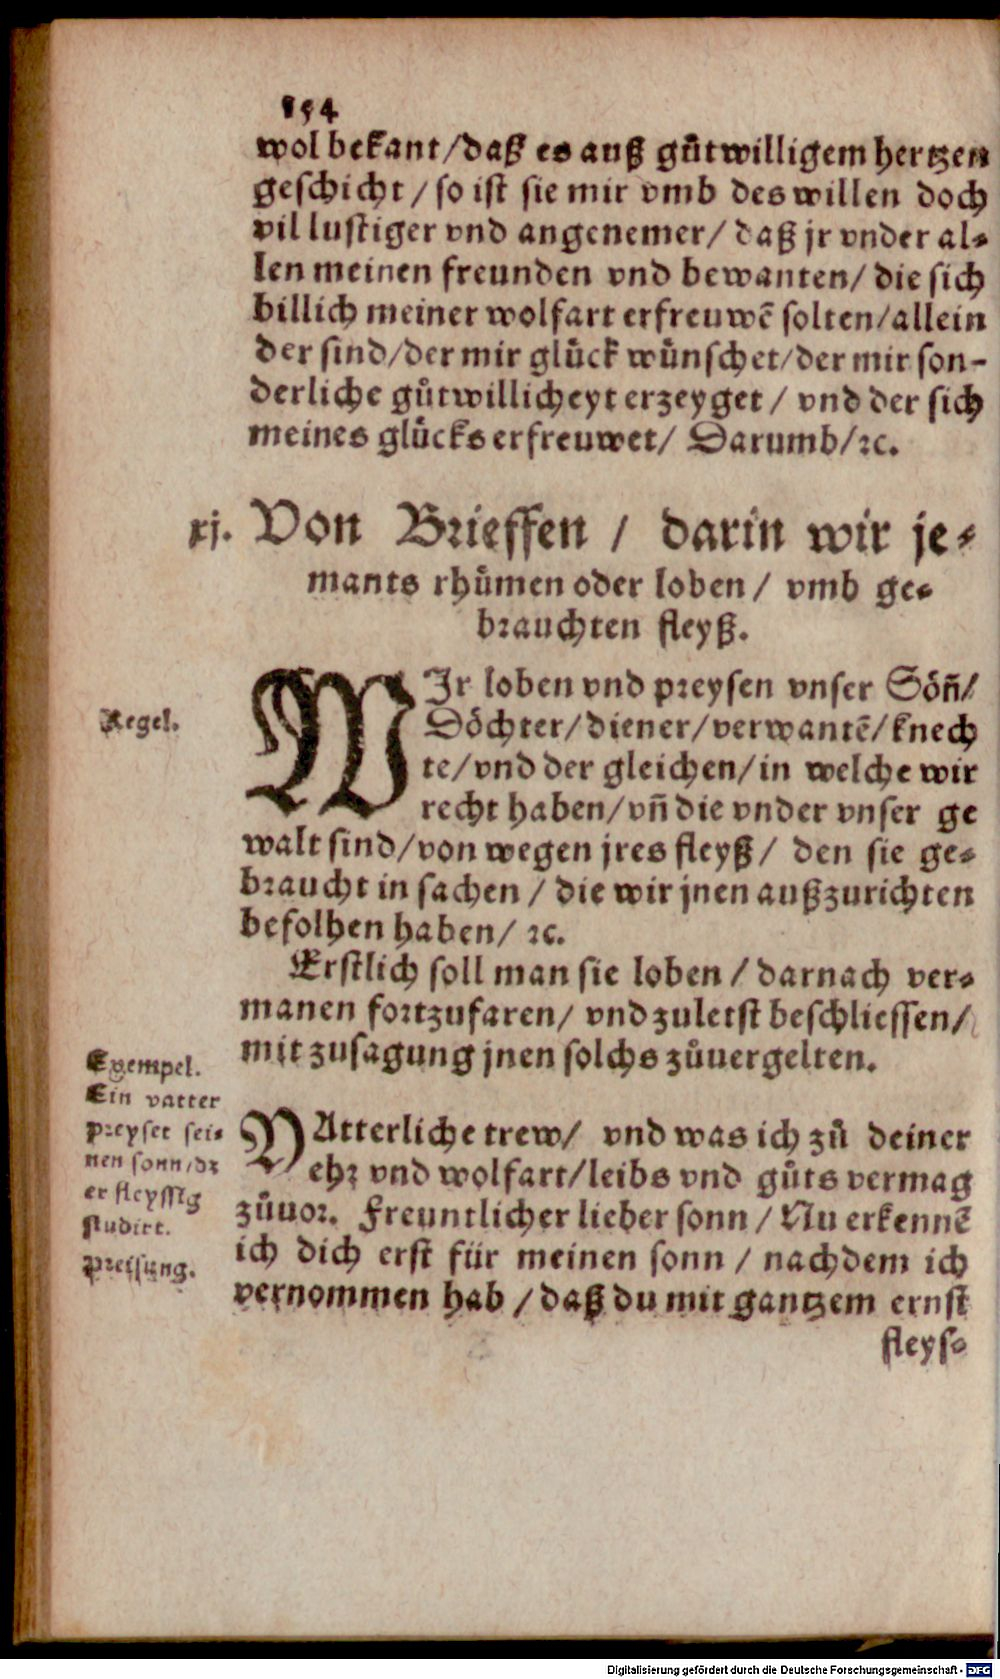 154
wol bekant/daß es auß gůtwilligem hertzen
geschicht / so ist sie mir vmb des willen doch
vil lustiger vnd angenemer/ daß jr vnder al-
len meinen freunden vnd bewanten/ die sich
billich meiner wolfart erfreuwẽ solten/allein
der sind/der mir glück wünschet/der mir son-
derliche gůtwillicheyt erzeyget / vnd der sich
meines glücks erfreuwet/ Darumb/ꝛc.
xj. Von Brieffen / darin wir je-
mants rhůmen oder loben / vmb ge-
brauchten fleyß.
Regel.
WIr loben vnd preysen vnser Söñ/
Döchter/diener/verwantẽ/knech
te/vnd der gleichen/in welche wir
recht haben/vñ die vnder vnser ge
walt sind/von wegen jres fleyß / den sie ge-
braucht in sachen / die wir jnen außzurichten
befolhen haben/ ꝛc.
Erstlich soll man sie loben / darnach ver-
manen fortzufaren/ vnd zuletst beschliessen/
mit zusagung jnen solchs zůuergelten.
Exempel.
Ein vatter
preyset sei-
nen sonn/dz
er fleyssig
studirt.
Preisung.
VAtterliche trew/ vnd was ich zů deiner
ehr vnd wolfart/leibs vnd gůts vermag
zůuor. Freuntlicher lieber sonn / Nu erkennẽ
ich dich erst für meinen sonn / nachdem ich
vernommen hab / daß du mit gantzem ernst
fleys-
Digitalisierung gefördert durch die Deutsche Forschungsgemeinschaft - DFG